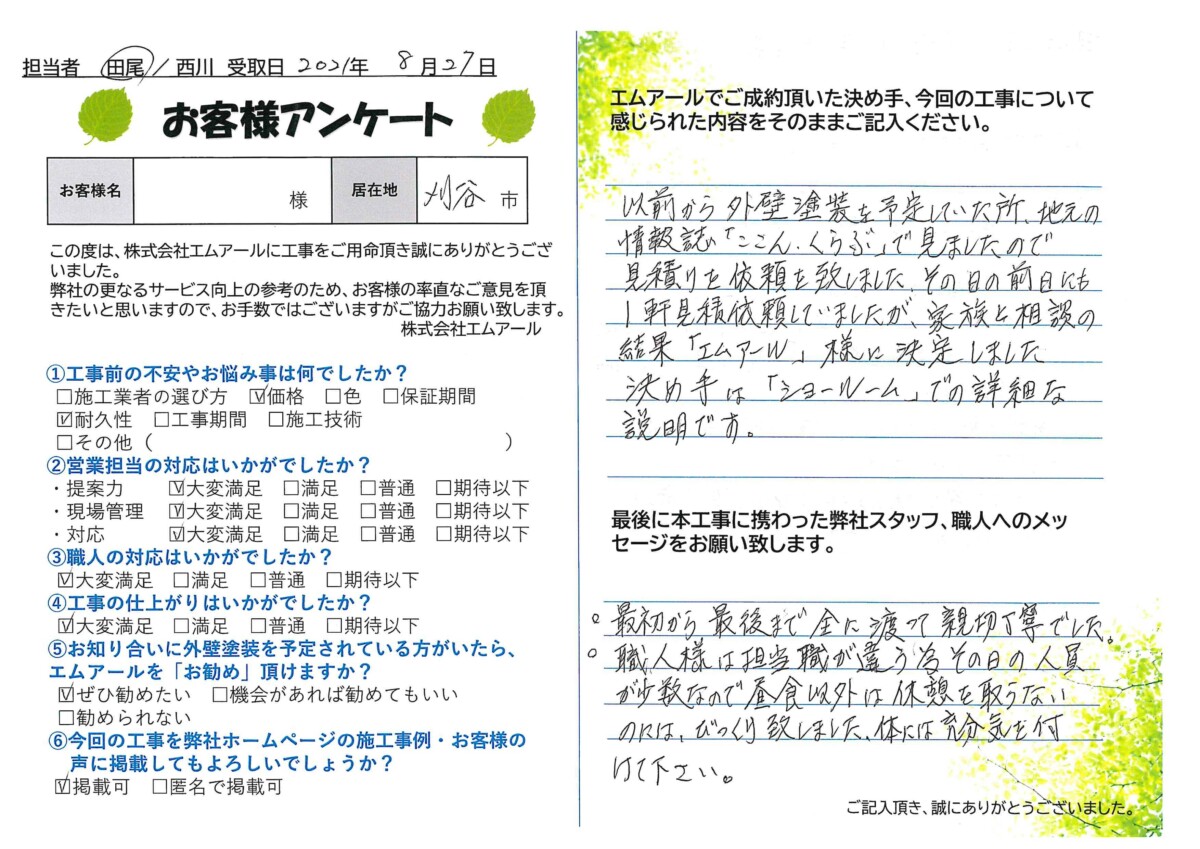 担当者 田尾/西川 受取日 2021年 8月27日
お客様アンケート
お客様名 様 居在地 刈谷 市
この度は、株式会社エムアールに工事をご用命頂き誠にありがとうござ
いました。
弊社の更なるサービス向上の参考のため、お客様の率直なご意見を頂
きたいと思いますので、お手数ではございますがご協力お願い致します。
株式会社エムアール
①工事前の不安やお悩み事は何でしたか?
□施工業者の選び方 ☑価格 □色 □保証期間
☑耐久性 □工事期間 □施工技術
□その他( )
②営業担当の対応はいかがでしたか?
・提案力 ☑大変満足 □満足 □普通 □期待以下
・現場管理 ☑大変満足 □満足 □普通 □期待以下
・対応 ☑大変満足 □満足 □普通 □期待以下
③職人の対応はいかがでしたか?
☑大変満足 □満足 □普通 □期待以下
④工事の仕上がりはいかがでしたか?
☑大変満足 □満足 □普通 □期待以下
⑤お知り合いに外壁塗装を予定されている方がいたら、
エムアールを「お勧め」頂けますか?
☑ぜひ勧めたい □機会があれば勧めてもいい
□勧められない
⑥今回の工事を弊社ホームページの施工事例・お客様の
声に掲載してもよろしいでしょうか?
☑掲載可 □匿名で掲載可
エムアールでご成約頂いた決め手、今回の工事について
感じられた内容をそのままご記入ください。
以前から外壁塗装を予定していた所、地元の
情報誌「ここん.くらぶ」で見ましたので
見積りを依頼を致しました、その日の前日にも
1軒見積依頼していましたが、家族と相談の
結果「エムアール」様に決定しました
決め手は「ショールーム」での詳細な
説明です。
最後に本工事に携わった弊社スタッフ、職人へのメッ
セージをお願い致します。
。最初から最後まで全に渡って親切丁寧でした。
。職人様は担当職が違う為その日の人員
が少数なので昼食以外は休憩を取らない
のには、びっくり致しました、体には充分気を付
けて下さい。
ご記入頂き、誠にありがとうございました。